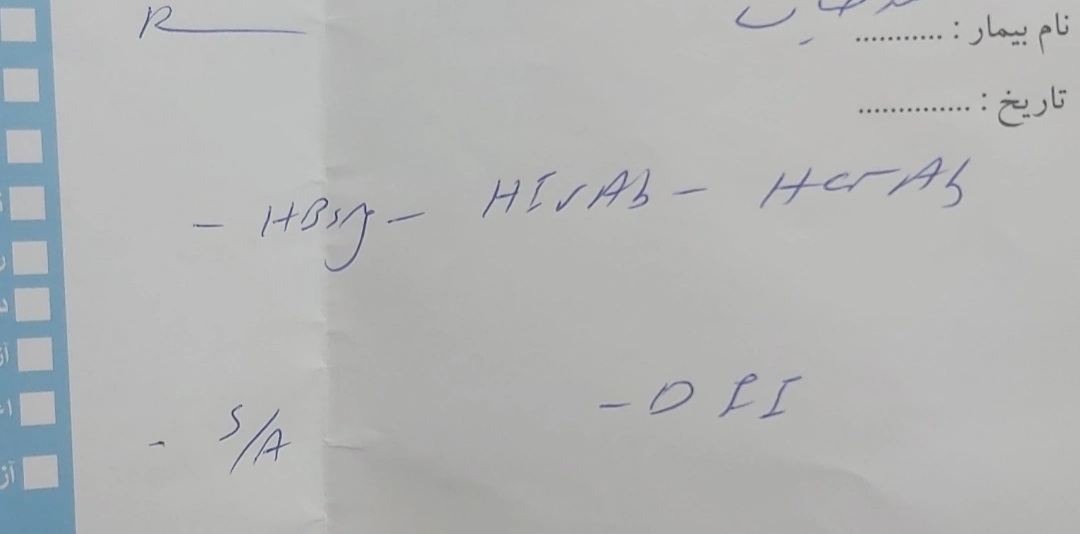 نام بیمار : ...........
R
تاریخ : ..............
- HBsAg - HIVAb - HCVAb
- S/A - DFI